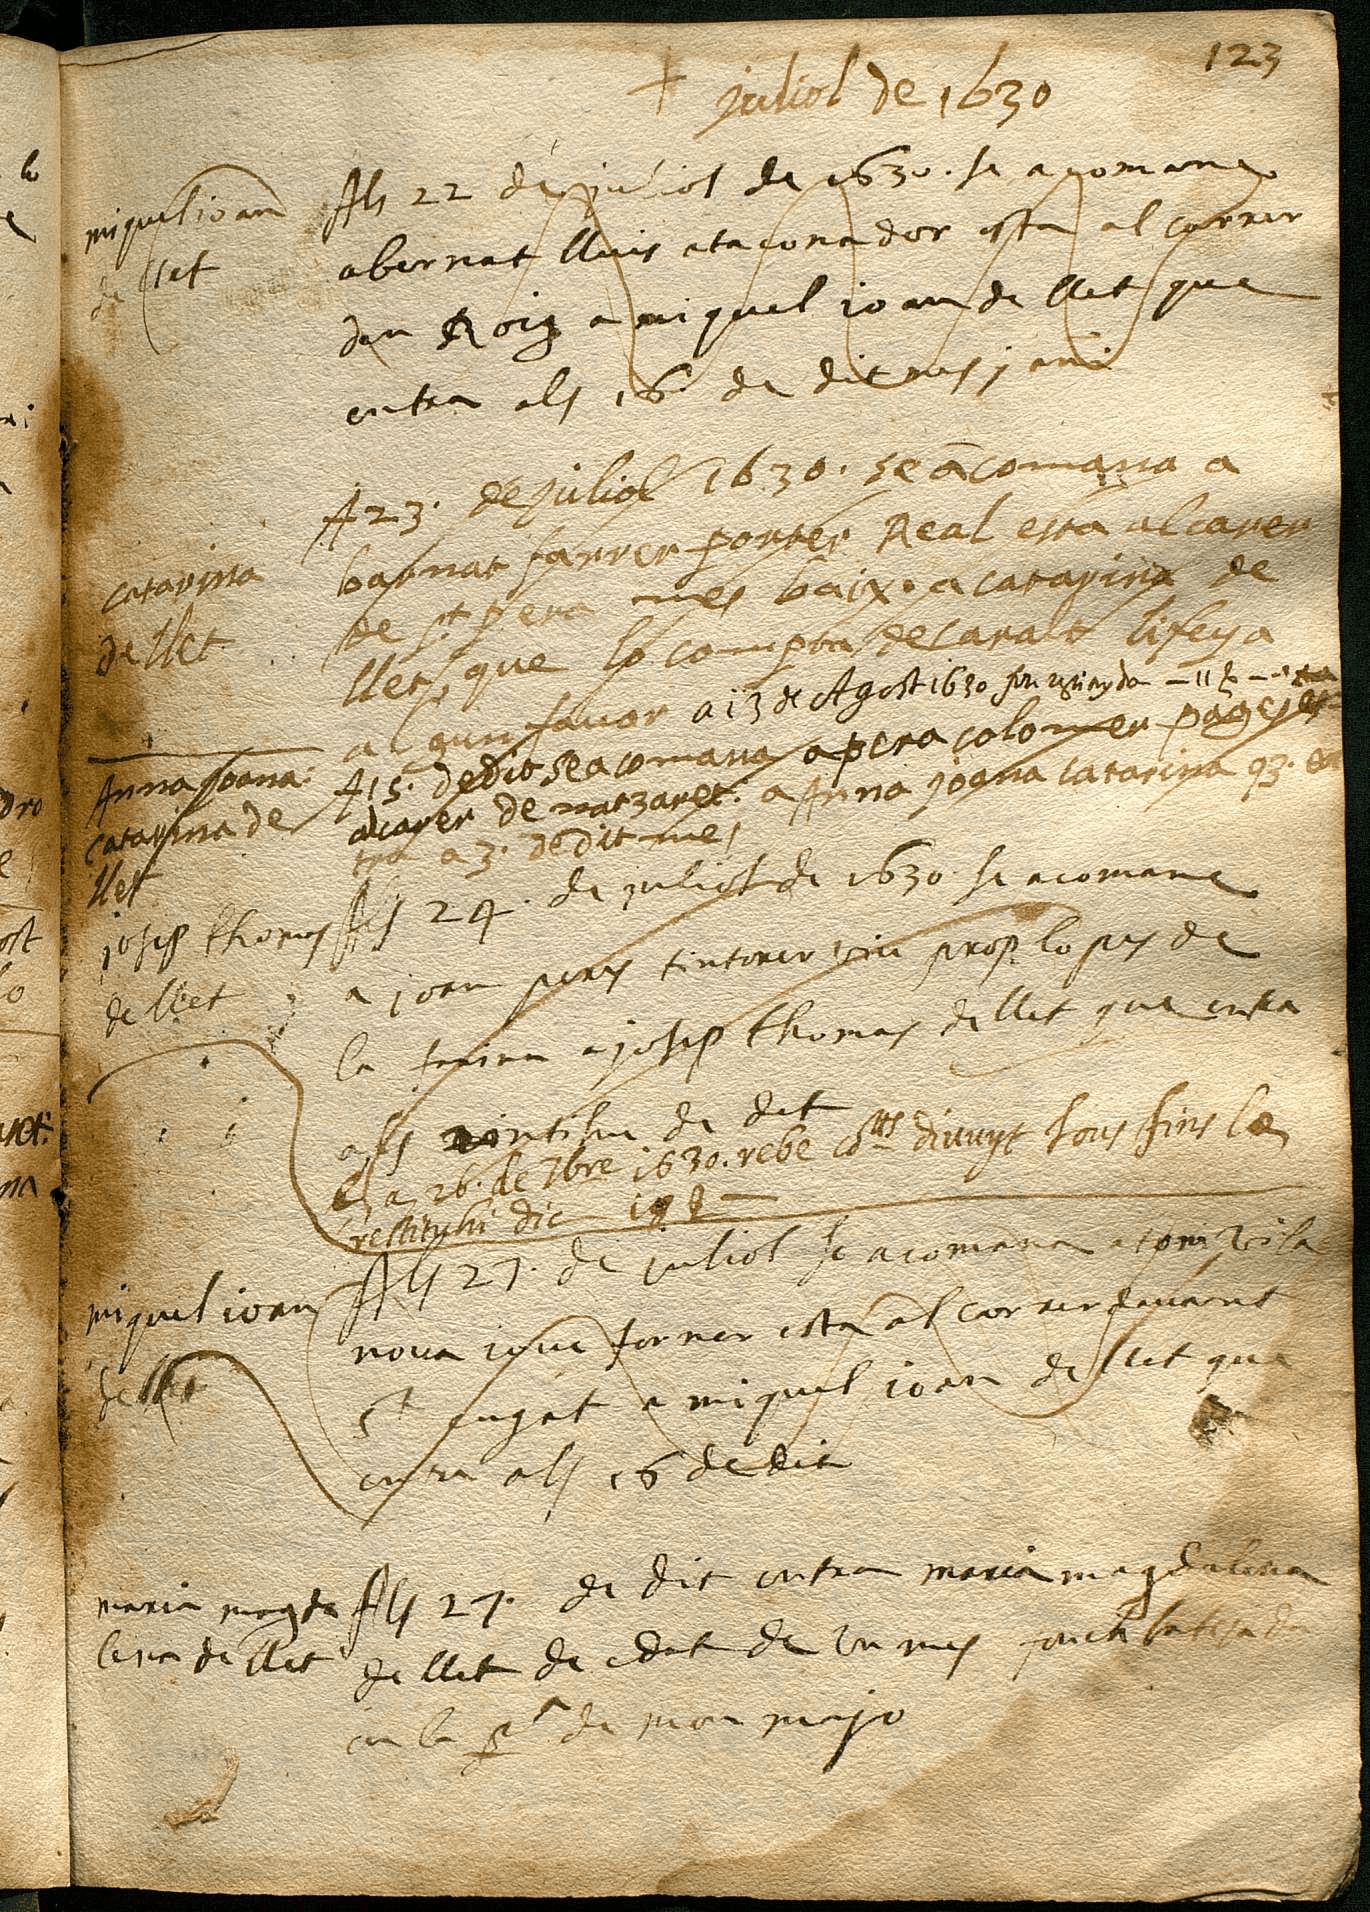 123
+ juliol de 1630
miquel ioan
de llet
Als 22 de juliol de 1630. se acomana
abernat lluis ataconador esta al carrer
den Roig a miquel ioan de llet que
entra als 16 de dit mes j ami
catarina
de llet
A 23. de juliol 1630. se acomana a
barnat farrer porter Real esta al carer
de st pera mes baix. a catarina de
llet, que lo compra de caralt li feya
algun favor a 13 de Agost 1630 fou
Anna Joana
catarina de
llet
A 15. de dit se acomana a pera colomer pages
al carer de natzaret. a Anna joana catarina q3. en
tra a 3. de dit mes
josep thomas
de llet
Als 24. de juliol de 1630 se acomana
a joan peris tintorer viu prop lo pes de
la farina a josep thomas de llet que entra
als de dit
a 26. de 7bre 1630. rebe divuyt sous fins la
restituhi dic 18
miquel ioan
de llet
Als 27. de juliol se acomana a toni vila
nova iove forner esta al carrer davant
st cugat a miquel ioan de llet que
entra als 16 de dit
maria magda
lena de llet
Als 27. de dit entra maria magdalena
de llet de edat de un mes fonch batejada
en la de mon majo